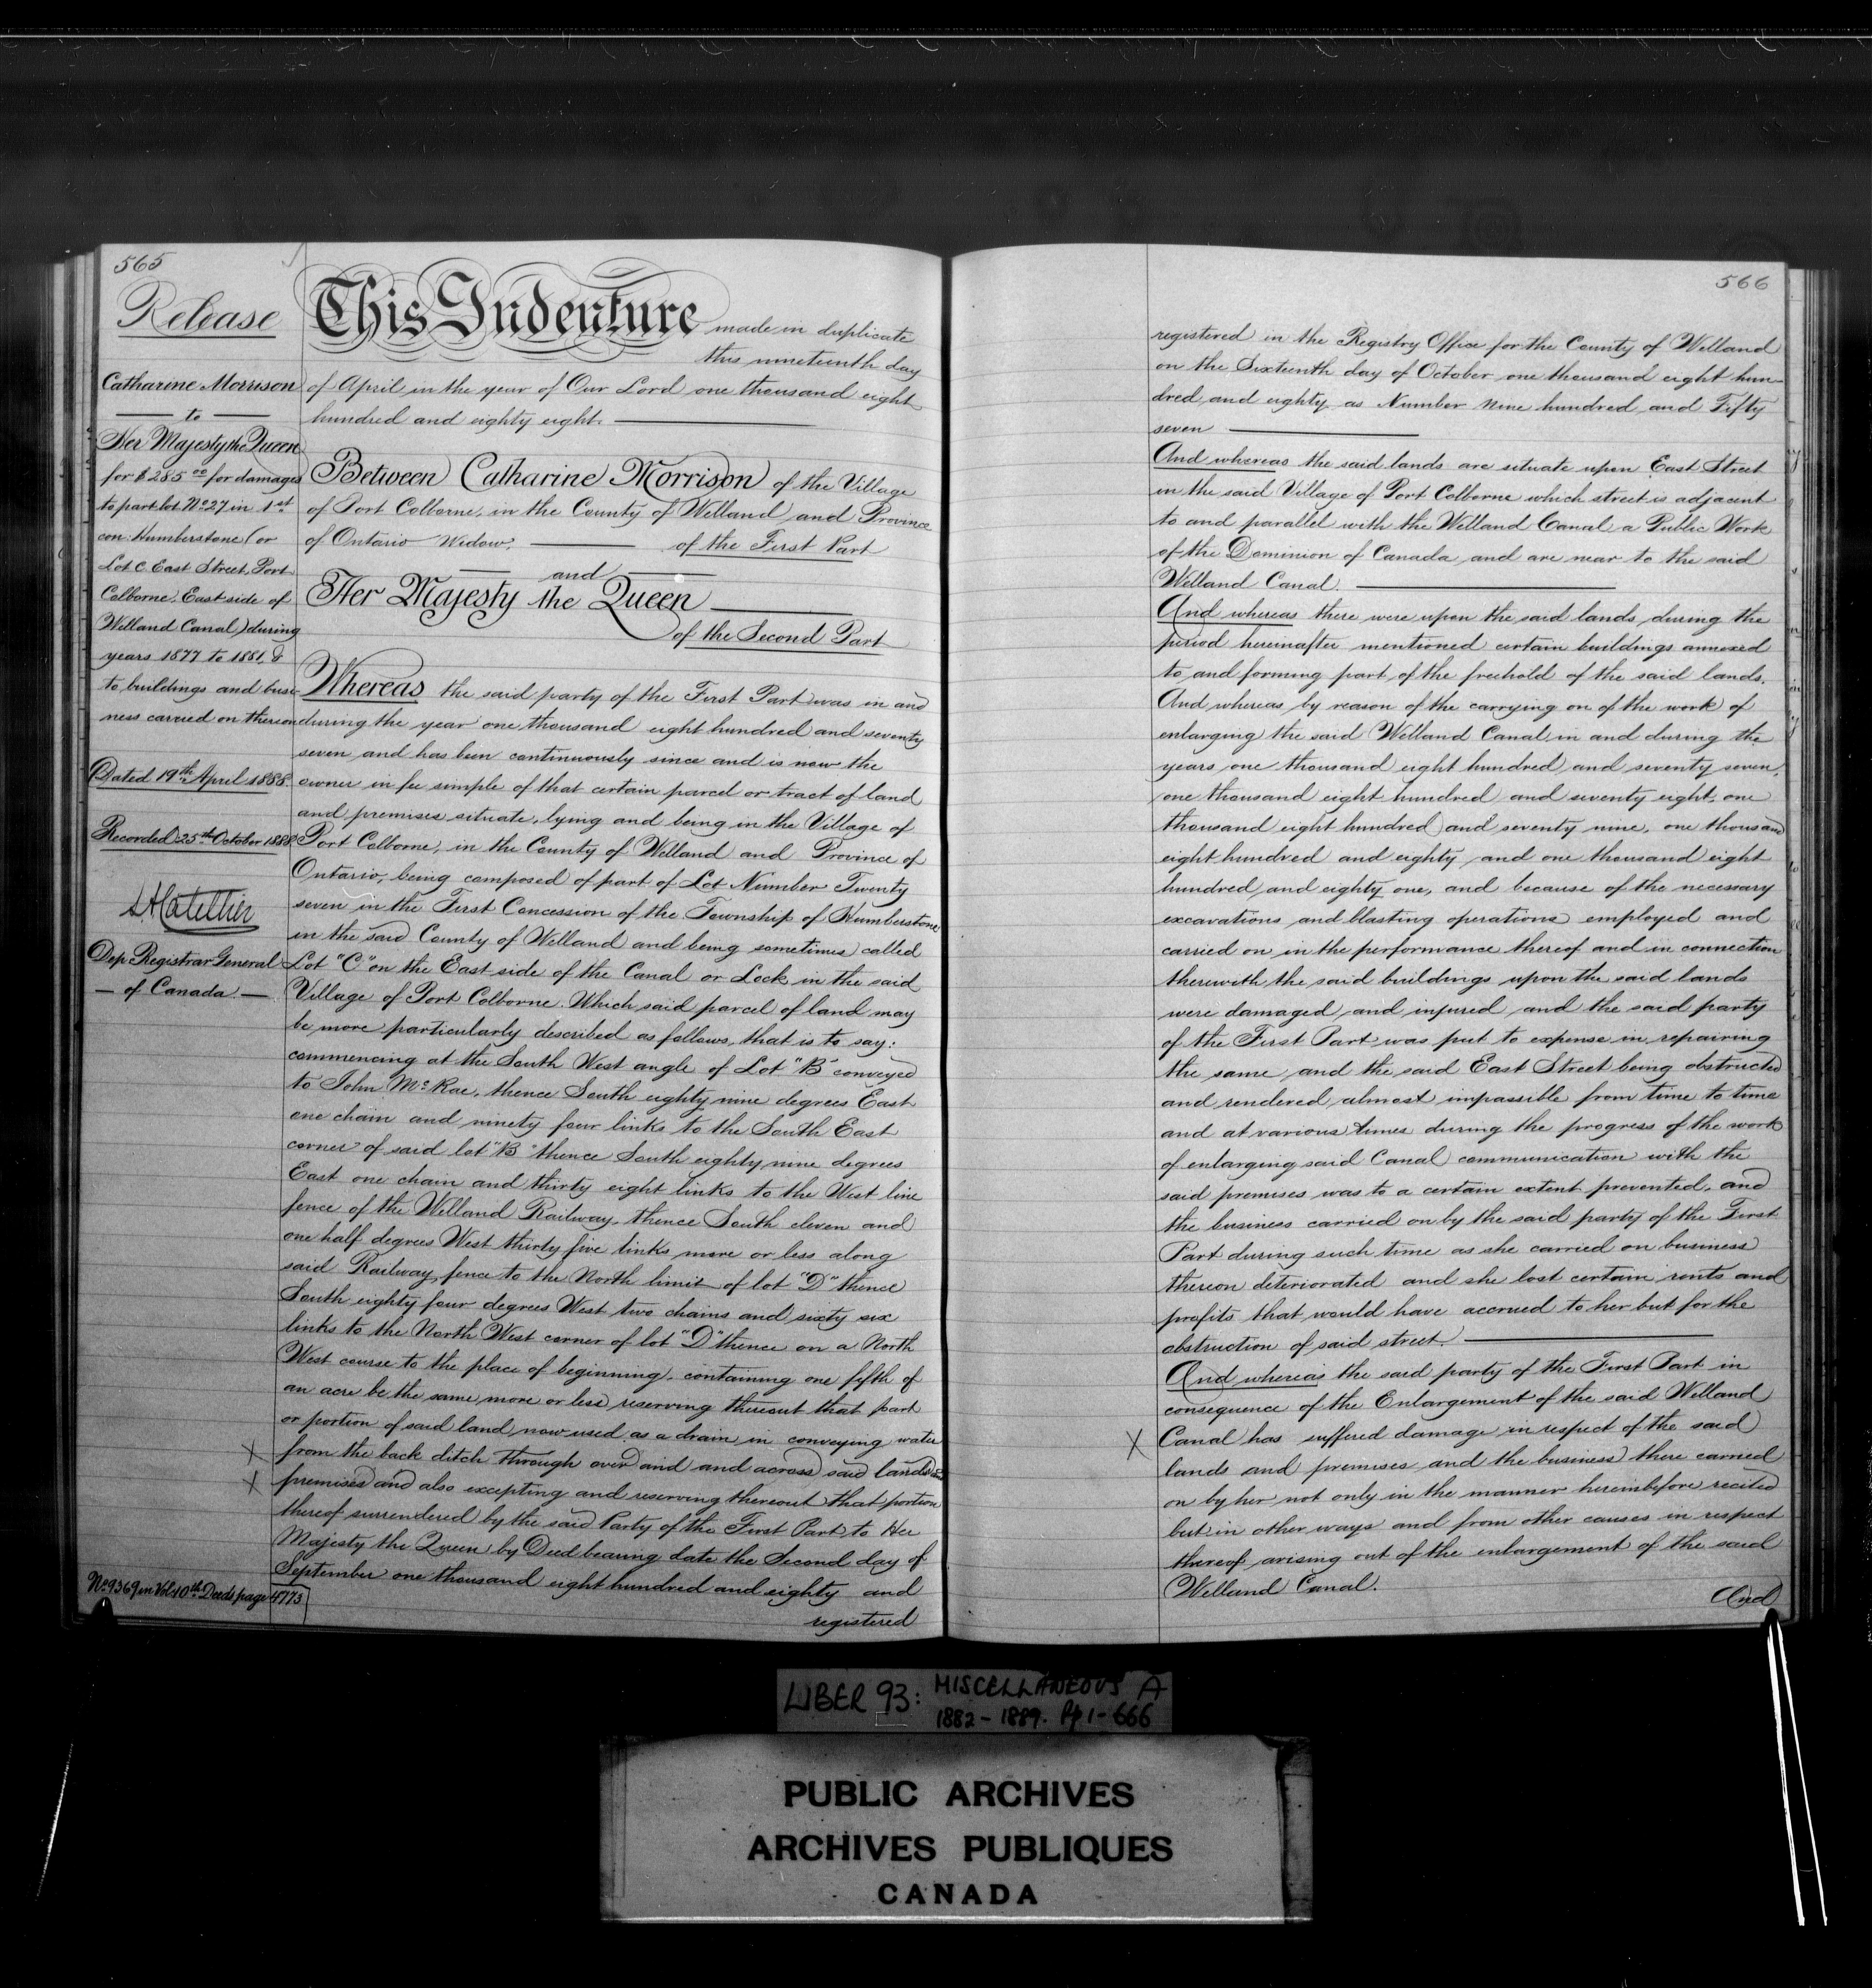 565
Release
Catharine Morrison
to
Her Majesty the Queen
for $285 00 for damages
to part lot No 27 in 1st
con: Humberstone (or
Lot C. East Street, Port
Colborne. East side of
Welland Canal) during
years 1877 to 1881, &
to buildings and busi-
ness carried on thereon
Dated 19th April 1888.
Recorded 25th October 1888
Dep. Registrar General
of Canada.
No 9369 in Vol 10th Deeds page 4773
This Indenture made in duplicate
this nineteenth day
of April in the year of Our Lord one thousand eight
hundred and eighty eight.
Between Catharine Morrison of the Village
of Port Colborne, in the County of Welland and Province
of Ontario Widow, of the First Part
and
Her Majesty the Queen
of the Second Part
Whereas the said party of the First Part was in and
during the year one thousand eight hundred and seventy
seven and has been continuously since and is now the
owner in fee simple of that certain parcel or tract of land
and premises situate, lying and being in the Village of
Port Colborne, in the County of Welland and Province of
Ontario, being composed of part of Lot Number Twenty
seven in the First Concession of the Township of Humberstone
in the said County of Welland and being sometimes called
Lot "C" on the East side of the Canal or Lock in the said
Village of Port Colborne. Which said parcel of land may
be more particularly described as follows, that is to say:
commencing at the South West angle of Lot "B" conveyed
to John McRae, thence South eighty nine degrees East
one chain and ninety four links to the South East
corner of said lot "B" thence South eighty nine degrees
East one chain and thirty eight links to the West line
fence of the Welland Railway, thence South eleven and
one half degrees West thirty five links more or less along
said Railway fence to the North limit of lot "D" thence
South eighty four degrees West two chains and sixty six
links to the North West corner of lot "D" thence on a North
West course to the place of beginning, containing one fifth of
an acre be the same more or less reserving thereout that part
or portion of said land now used as a drain in conveying water
X from the back ditch through over and and across said lands and
X premises and also excepting and reserving thereout that portion
thereof surrendered by the said Party of the First Part to Her
Majesty the Queen by Deed bearing date the Second day of
September one thousand eight hundred and eighty and
registered
566
registered in the Registry Office for the County of Welland
on the Sixteenth day of October one thousand eight hun-
dred and eighty as Number Nine hundred and Fifty
seven
And whereas the said lands are situate upon East Street
in the said Village of Port Colborne which street is adjacent
to and parallel with the Welland Canal a Public Work
of the Dominion of Canada and are near to the said
Welland Canal.
And whereas there were upon the said lands during the
period hereinafter mentioned certain buildings annexed
to and forming part of the freehold of the said lands.
And whereas by reason of the carrying on of the work of
enlarging the said Welland Canal in and during the
years one thousand eight hundred and seventy seven,
one thousand eight hundred and seventy eight, one
thousand eight hundred and seventy nine, one thousand
eight hundred and eighty and one thousand eight
hundred and eighty one, and because of the necessary
excavations and blasting operations employed and
carried on in the performance thereof and in connection
therewith the said buildings upon the said lands
were damaged and injured and the said party
of the First Part was put to expense in repairing
the same and the said East Street being obstructed
and rendered almost impassible from time to time
and at various times during the progress of the work
of enlarging said Canal communication with the
said premises was to a certain extent prevented, and
the business carried on by the said party of the First
Part during such time as she carried on business
thereon deteriorated and she lost certain rents and
profits that would have accrued to her but for the
obstruction of said street.
And whereas the said party of the First Part in
consequence of the Enlargement of the said Welland
X Canal has suffered damage in respect of the said
lands and premises and the business there carried
on by her not only in the manner hereinbefore recited
but in other ways and from other causes in respect
thereof arising out of the enlargement of the said
Welland Canal.
And
LIBER 93: MISCELLANEOUS A
1882-1889. Pp 1-666
PUBLIC ARCHIVES
ARCHIVES PUBLIQUES
CANADA